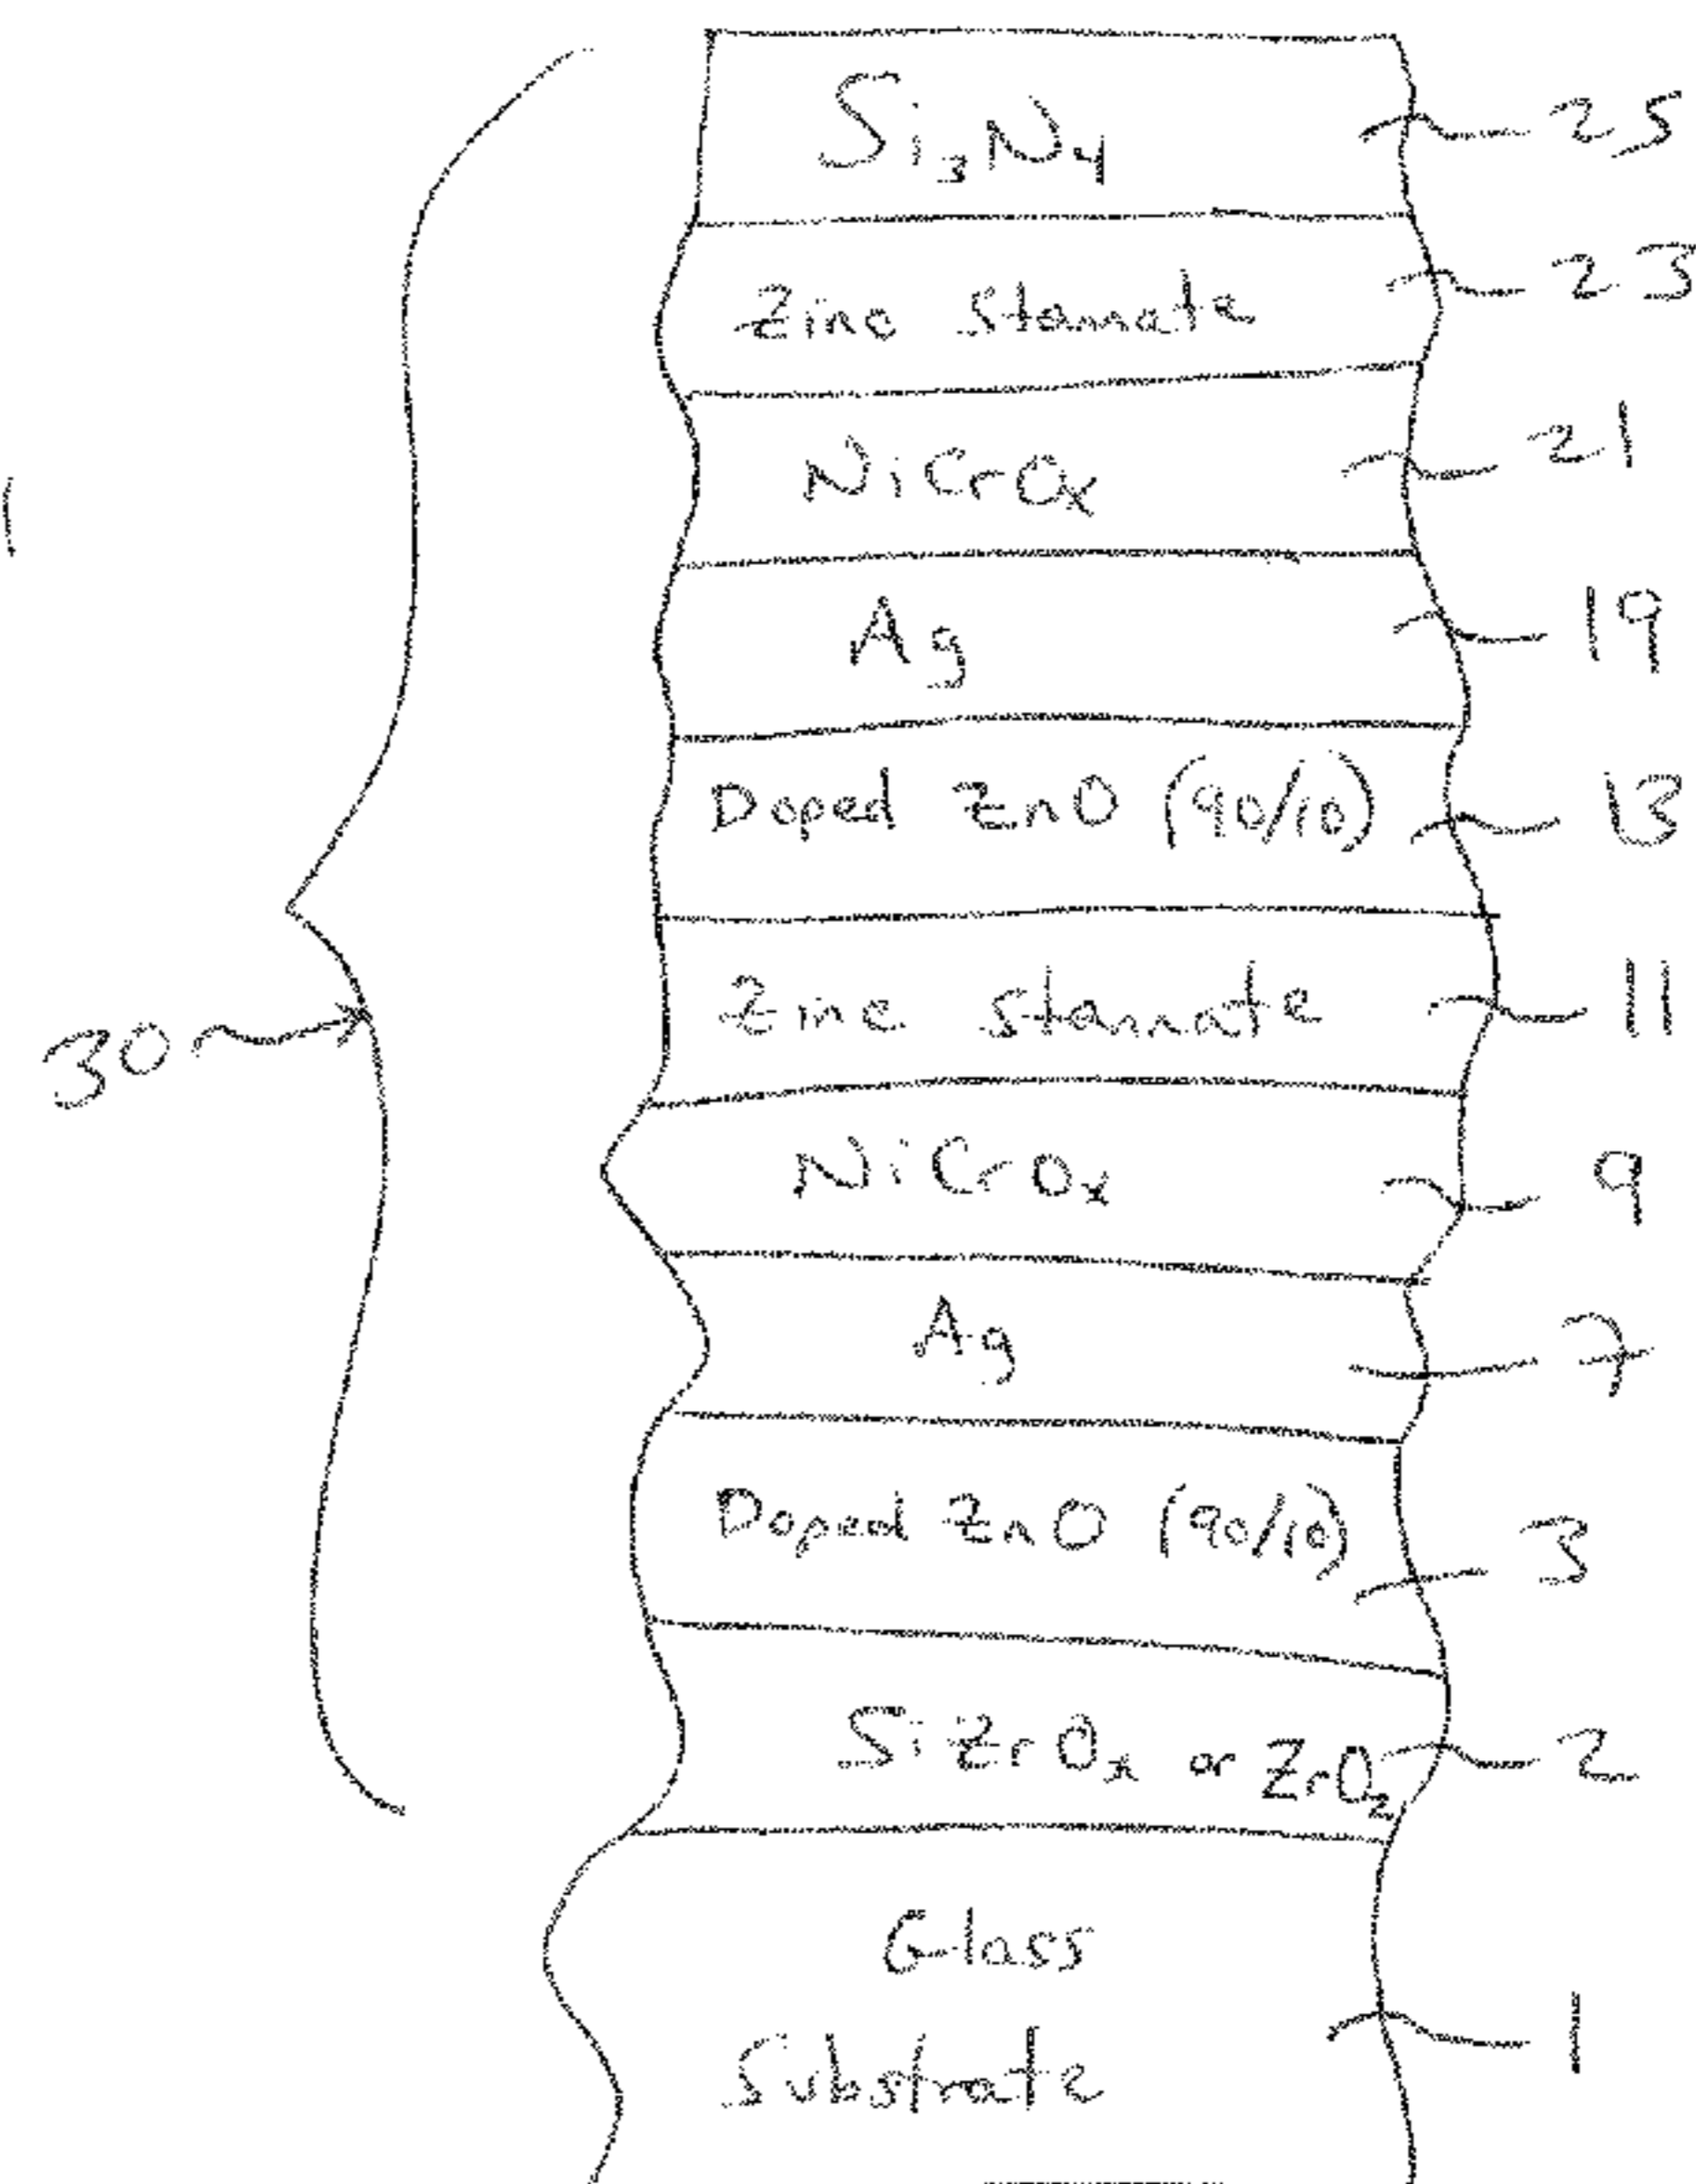 Si₃N₄ 25
Zinc Stannate 23
NiCrOx 21
Ag 19
Doped ZnO (90/10) 13
Zinc stannate 11
30
NiCrOx 9
Ag 7
Doped ZnO (90/10) 3
SiZrOx or ZrO₂ 2
Glass
Substrate 1